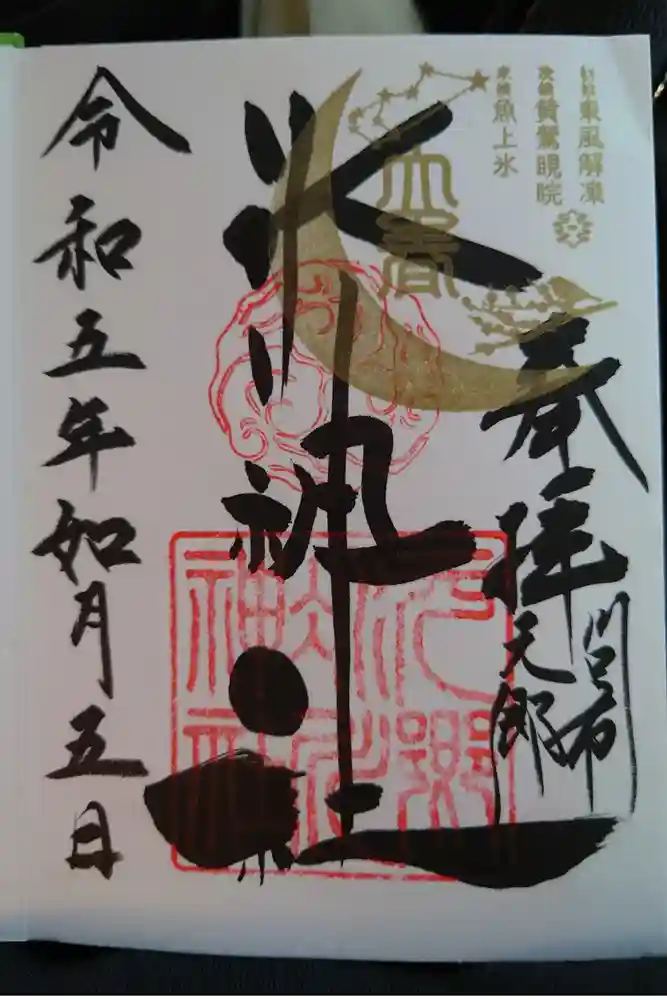 初候 東風解凍
次候 黄鶯睍睆
末候 魚上氷
立春
奉拝
川口市
元郷
氷川神社
令和五年如月五日